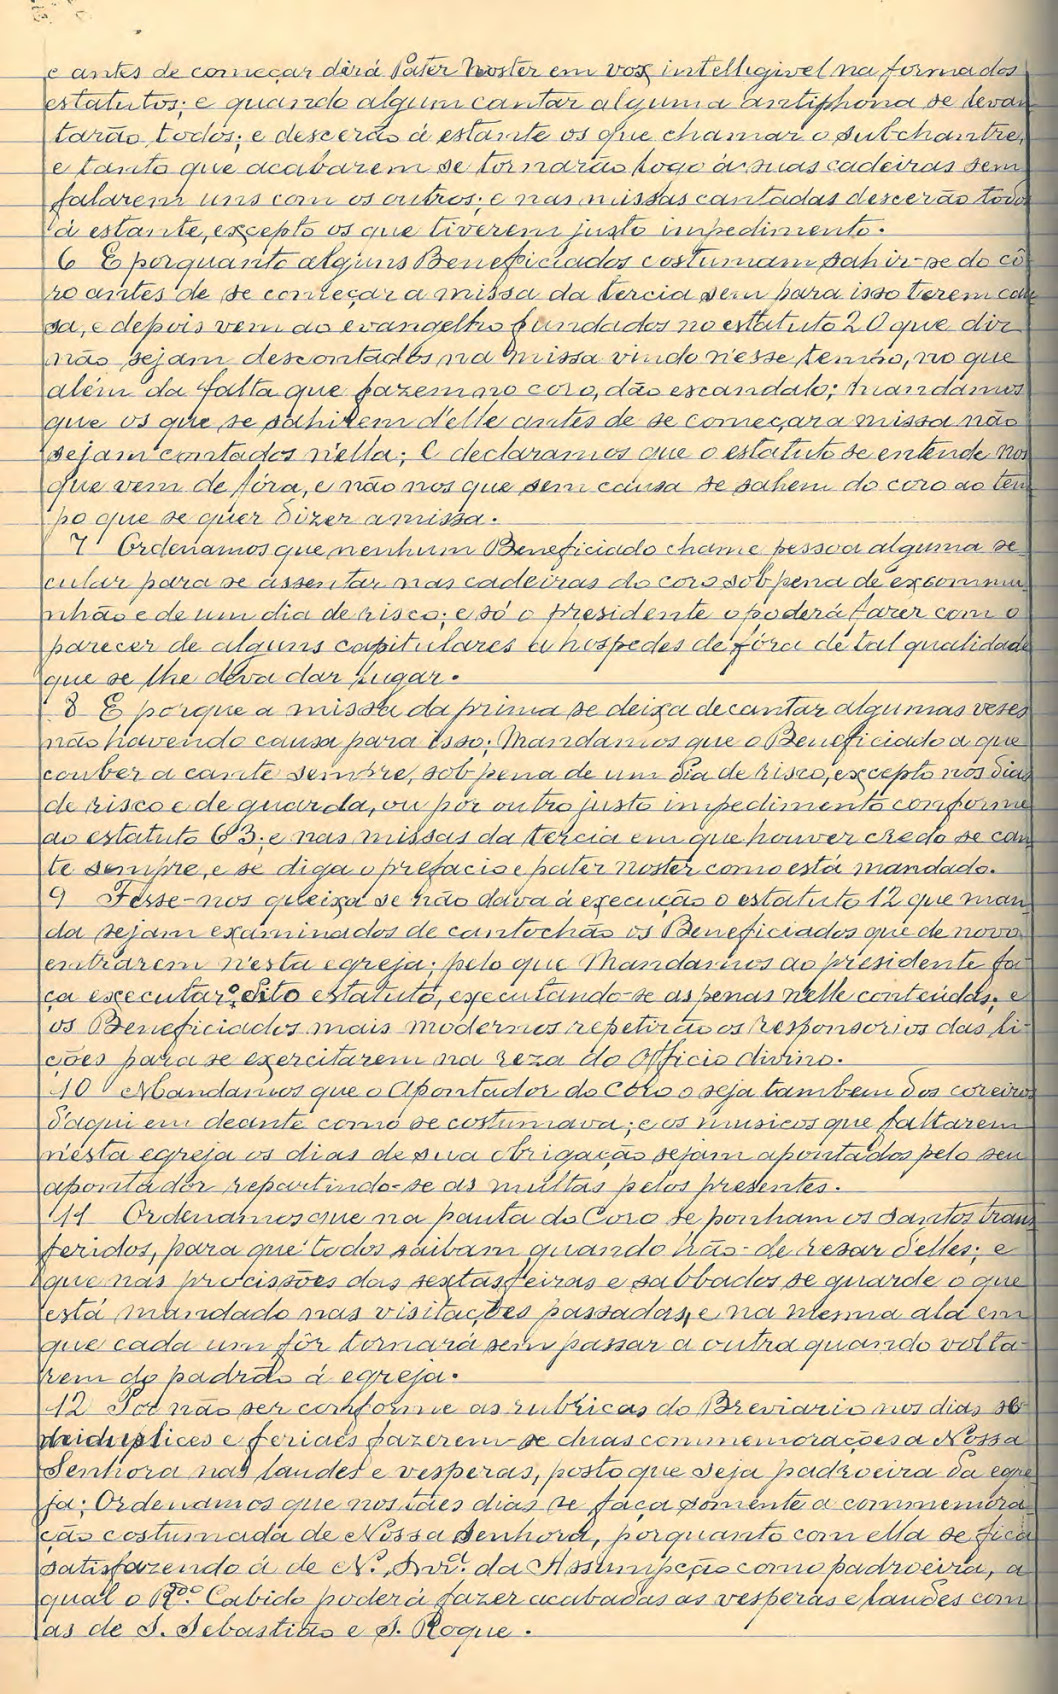 e antes de começar dirá Pater Noster em vox intelligivel na forma dos
estatutos; e quando algum cantar alguma antiphona se levan
tarão todos; e descerão á estante os que chamar o subchantre,
e tanto que acabarem se tornarão logo ás suas cadeiras sem
falarem uns com os outros; e nas missas cantadas descerão todos
á estante, excepto os que tiverem justo impedimento.
6 E porquanto alguns Beneficiados costumam sahir-se do cô
ro antes de se começar a missa da tercia sem para isso terem cau
sa, e depois vem ao evangelho fundados no estatuto 20 que diz
não sejam descontados na missa vindo n'esse tempo, no que
além da falta que fazem no coro, dão escandalo; Mandamos
que os que se sahirem d'elle antes de se começar a missa não
sejam contados n'ella; E declaramos que o estatuto se entende nos
que vem de fóra, e não nos que sem causa se sahem do coro ao tem
po que se quer dizer a missa.
7 Ordenamos que nenhum Beneficiado chame pessoa alguma se
cular para se assentar nas cadeiras do coro sob pena de excommu
nhão e de um dia de risco; e só o presidente o poderá fazer com o
parecer de alguns capitulares a hospedes de fóra de tal qualidade
que se lhe deva dar lugar.
8 E porque a missa da prima se deixa de cantar algumas vezes
não havendo causa para isso; Mandamos que o Beneficiado a que
couber a cante sempre, sob pena de um dia de risco, excepto nos dias
de risco e de guarda, ou por outro justo impedimento conforme
ao estatuto 63; e nas missas da tercia em que houver credo se can
te sempre, e se diga o prefacio e pater noster como está mandado.
9 Fesse-nos queixa se não dava á execução o estatuto 12 que man
da sejam examinados de cantochão os Beneficiados que de novo
entrarem n'esta egreja; pelo que Mandamos ao presidente fa
ça executar o dito estatuto, executando-se as penas nelle conteúdas; e
os Beneficiados mais modernos repetirão os responsorios das li-
ções para se exercitarem na reza do Officio divino.
10 Mandamos que o Apontador do Coro o seja tambem dos coreiros
d'aqui em deante como se costumava; e os musicos que faltarem
n'esta egreja os dias de sua obrigação sejam apontados pelo seu
apontador repartindo-se as multas pelos presentes.
11 Ordenamos que na pauta do Coro se ponham os Santos trans
feridos, para que todos saibam quando hão-de resar d'elles; e
que nas procissões das sextas feiras e sabbados se guarde o que
está mandado nas visitações passadas, e na mesma ala em
que cada um fôr tornará sem passar a outra quando volta-
rem do padrão á egreja.
12 Por não ser conforme as rubricas do Breviario nos dias se
miduplices e feriaes fazerem-se duas commemorações a Nossa
Senhora nas laudes e vesperas, posto que seja padroeira da egre
ja; Ordenamos que nos taes dias se faça somente a commemora
ção costumada de Nossa Senhora, porquanto com ella se fica
satisfazendo á de N. Snrª. da Assumpção como padroeira, a
qual o Rdo. Cabido poderá fazer acabadas as vesperas e laudes com
as de S. Sebastião e S. Roque.